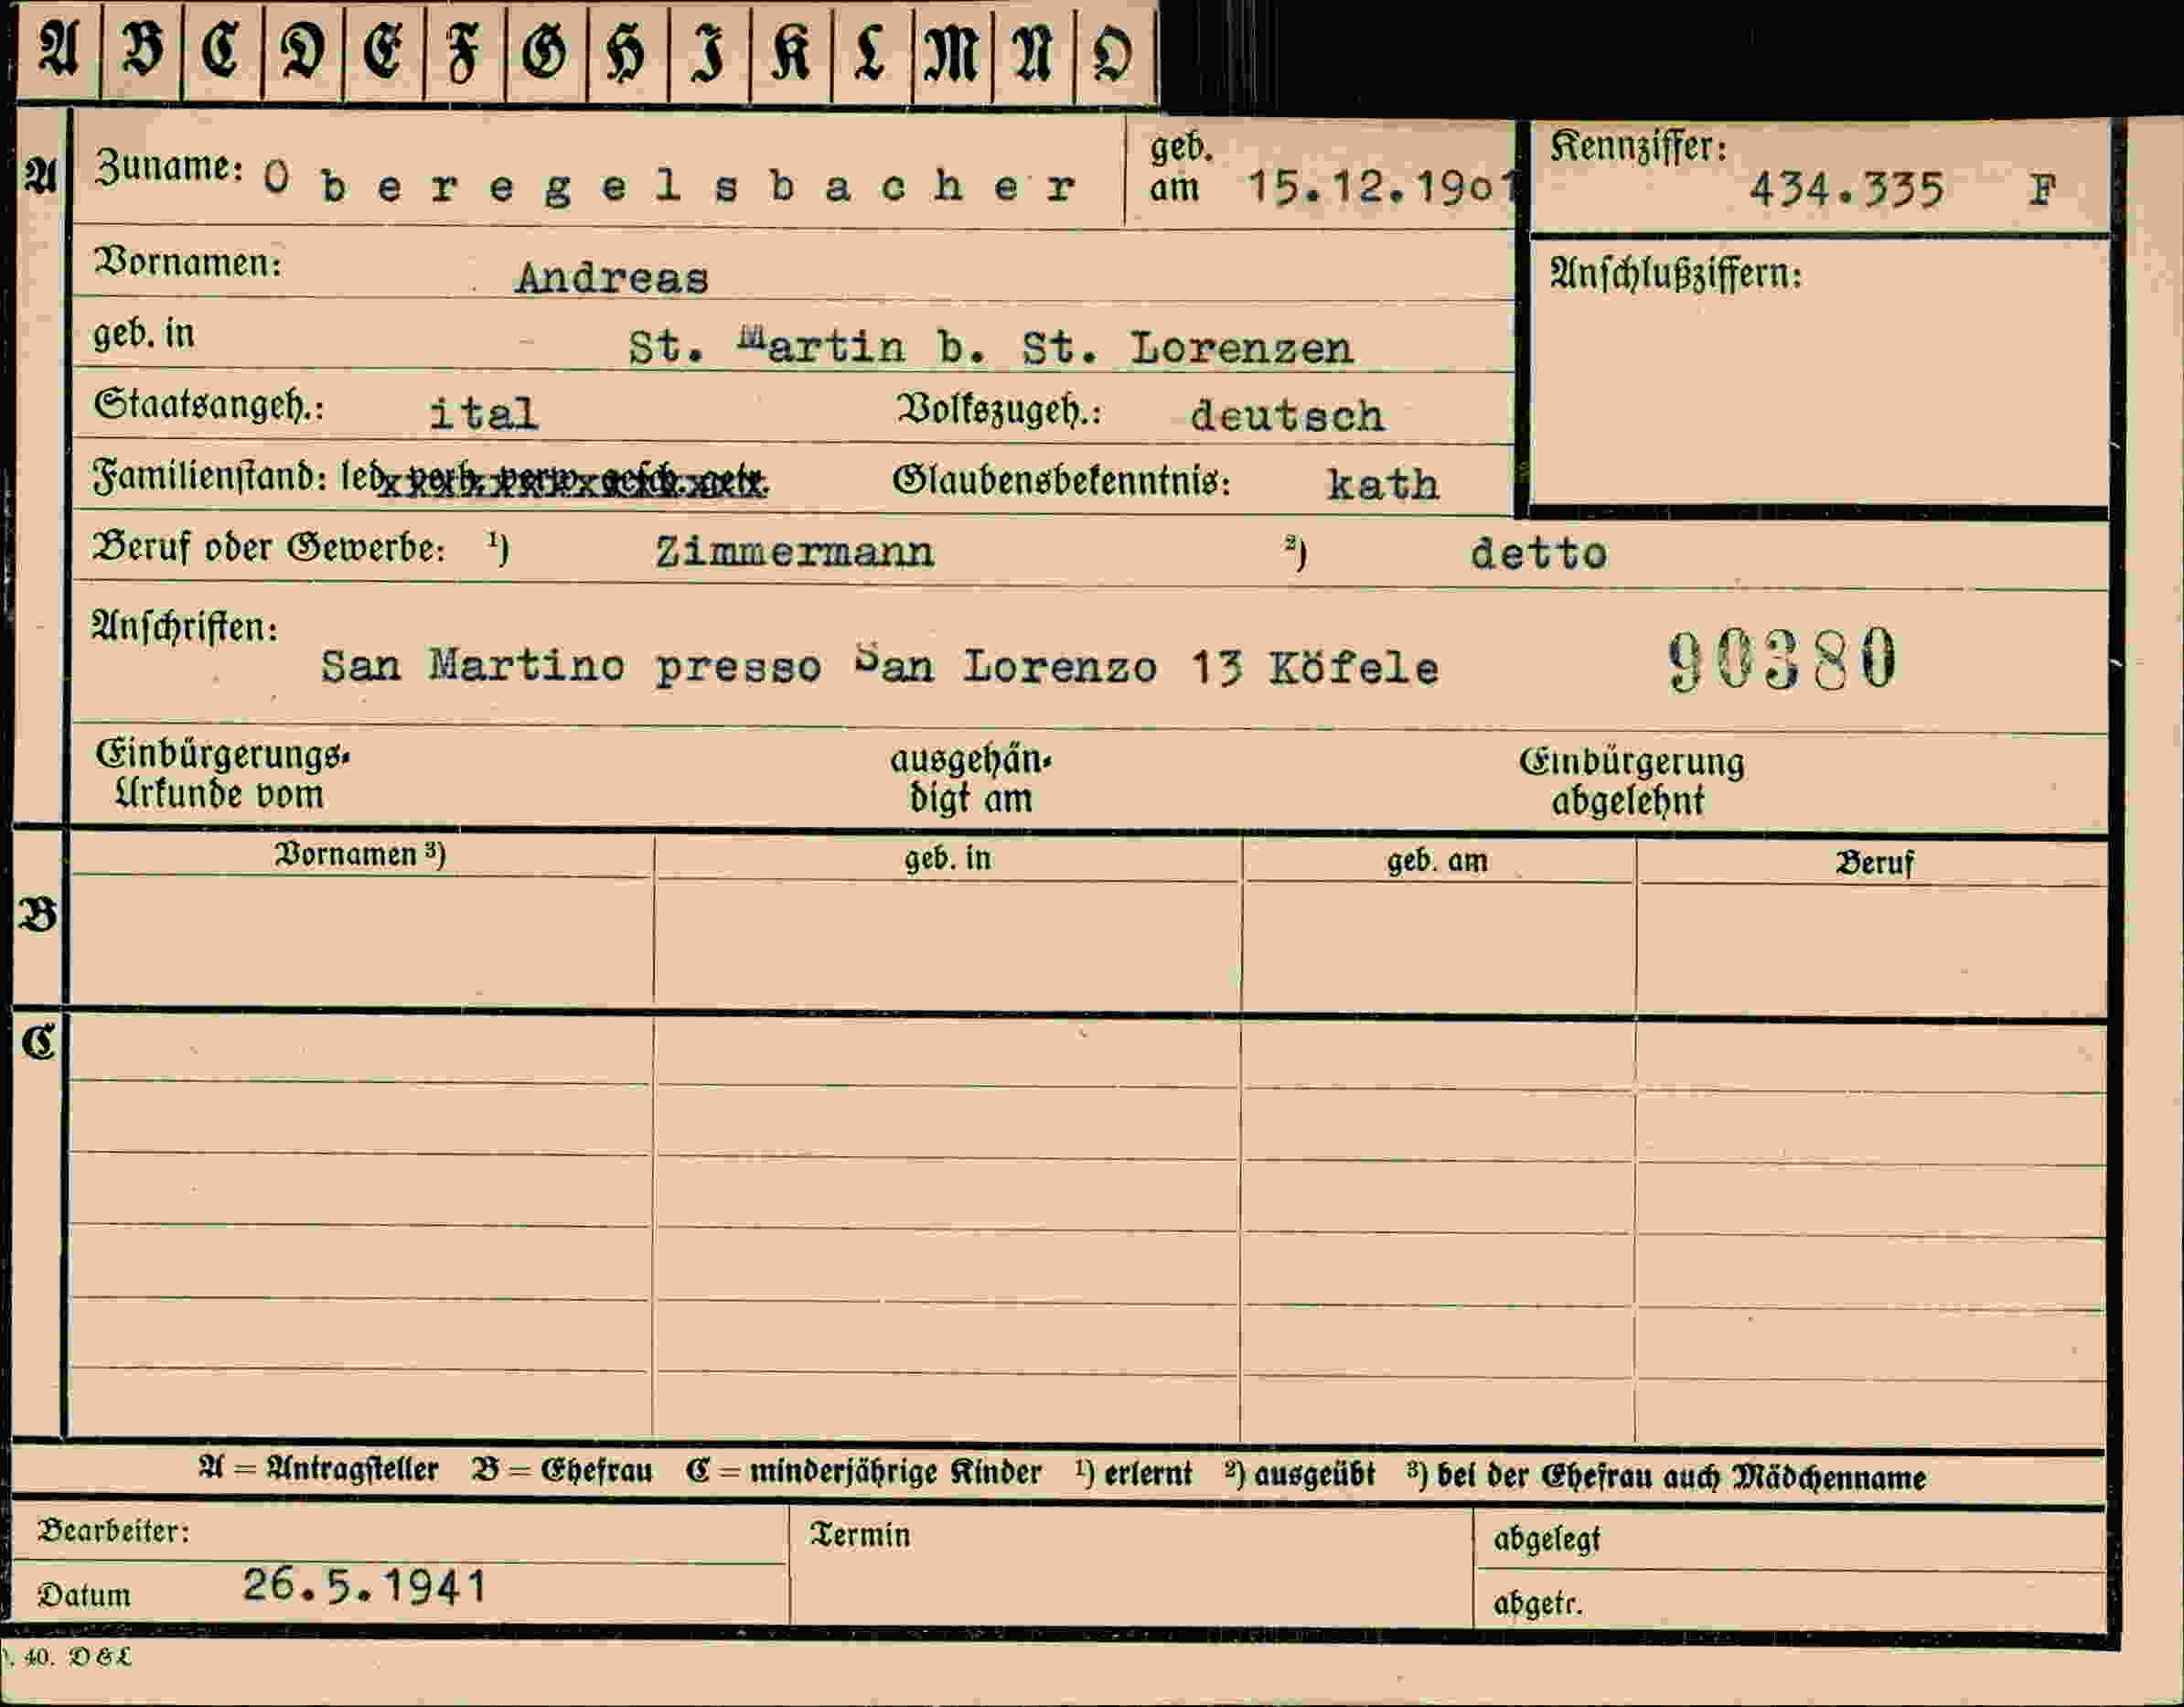 A B C D E F G H I K L M N O
A
Zuname: Oberegelsbacher geb. am 15.12.19o1
Kennziffer: 434.335 F
Vornamen: Andreas
Anschlußziffern:
geb. in St. Martin b. St. Lorenzen
Staatsangeh.: ital Volkszugeh.: deutsch
Familienstand: led. verh. verw. gesch. getr. Glaubensbekenntnis: kath
Beruf oder Gewerbe: ¹) Zimmermann ²) detto
Anschriften:
San Martino presso San Lorenzo 13 Köfele 90380
Einbürgerungs-Urkunde vom ausgehändigt am Einbürgerung abgelehnt
Vornamen ³) geb. in geb. am Beruf
B
C
A = Antragsteller B = Ehefrau C = minderjährige Kinder ¹) erlernt ²) ausgeübt ³) bei der Ehefrau auch Mädchenname
Bearbeiter: Termin abgelegt
Datum 26.5.1941 abgetr.
40. D&L